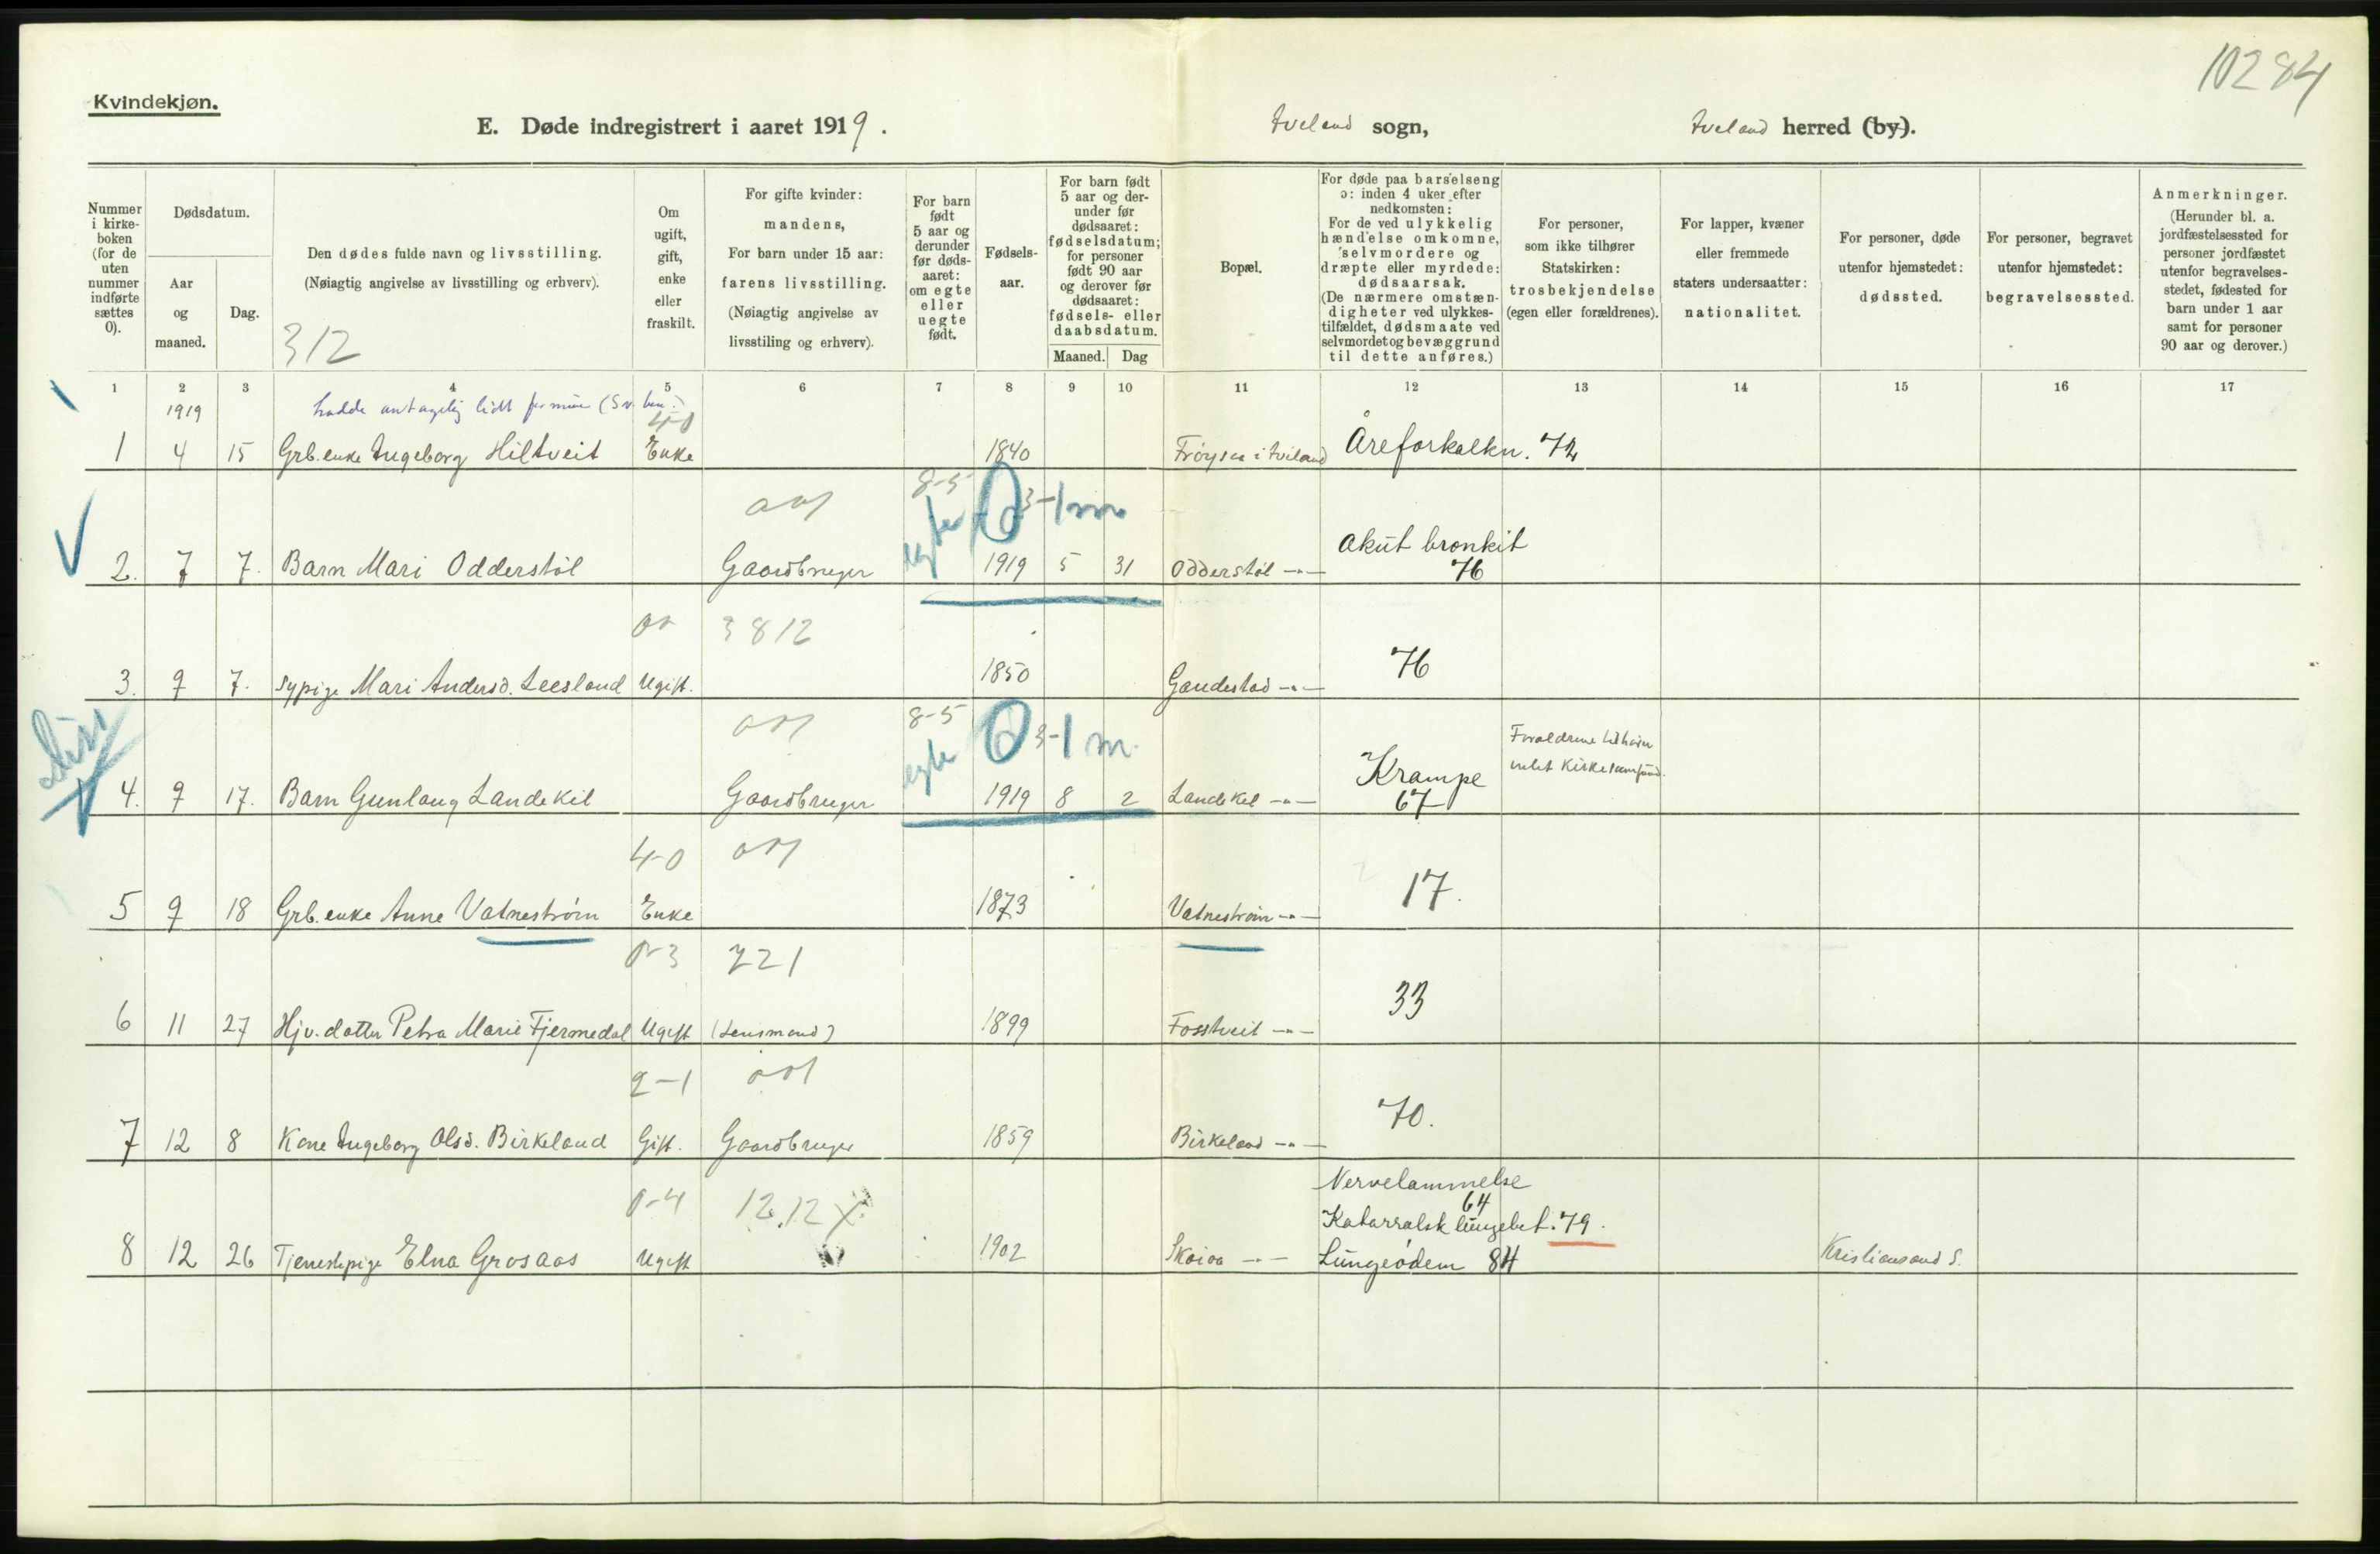 10284
Kvindekjøn.
E. Døde indregistrert i aaret 1919. Iveland sogn, Iveland herred (by).
Nummer i kirkeboken (for de uten nummer indførte sættes 0).
Dødsdatum.
Aar og maaned.
Dag.
Den dødes fulde navn og livsstilling.
(Nøiagtig angivelse av livsstilling og erhverv).
312
Om ugift, gift, enke eller fraskilt.
For gifte kvinder: mandens,
For barn under 15 aar: farens livsstilling.
(Nøiagtig angivelse av livsstiling og erhverv).
For barn født 5 aar og derunder før dødsaaret: om egte eller uegte født.
Fødselsaar.
For barn født 5 aar og derunder før dødsaaret: fødselsdatum; for personer født 90 aar og derover før dødsaaret: fødsels- eller daabsdatum.
Maaned. Dag
Bopæl.
For døde paa barselseng ɔ: inden 4 uker efter nedkomsten:
For de ved ulykkelig hændelse omkomne, selvmordere og dræpte eller myrdede: dødsaarsak.
(De nærmere omstændigheter ved ulykkestilfældet, dødsmaate ved selvmordet og bevæggrund til dette anføres.)
For personer, som ikke tilhører Statskirken: trosbekjendelse (egen eller forældrenes).
For lapper, kvæner eller fremmede staters undersaatter: nationalitet.
For personer, døde utenfor hjemstedet: dødssted.
For personer, begravet utenfor hjemstedet: begravelsessted.
Anmerkninger.
(Herunder bl. a. jordfæstelsessted for personer jordfæstet utenfor begravelsesstedet, fødested for barn under 1 aar samt for personer 90 aar og derover.)
1 2 3 4 5 6 7 8 9 10 11 12 13 14 15 16 17
1919 hadde antagelig lidt 4-0
1 4 15 Grb.enke Ingeborg Hiltveit Enke 1840 Frøysaa i Iveland Åreforkalkn. 72
8-5 3-1 m
2. 7 7. Barn Mari Odderstøl Gaardbruger egte 1919 5 31 Odderstøl -"- Akut bronkit 76
3812
3. 9 7. Sypige Mari Andersd. Leesland Ugift. 1850 Gaudestad -"- 76
8-5 3-1 m.
4. 9 17. Barn Gunlaug Landekil Gaardbruger egte 1919 8 2 Landekil -"- Krampe 67 Forældrene tilhører intet Kirkesamfund.
4-0
5 9 18 Grb.enke Anne Vatnestrøm Enke 1873 Vatnestrøm -"- 17.
0-3 221
6 11 27 Hjv.datter Petra Marie Fjermedal Ugift (Lensmand) 1899 Fosstveit -"- 33
2-1
7 12 8 Kone Ingeborg Olsd. Birkeland Gift. Gaardbruger 1859 Birkeland -"- 70.
0-4 12.12
Nervelammelse 64
Katarralsk lungebet. 79.
8 12 26 Tjenestepige Elna Grosaas Ugift 1902 Skaiaa -"- Lungeødem 84 Kristiansand S.